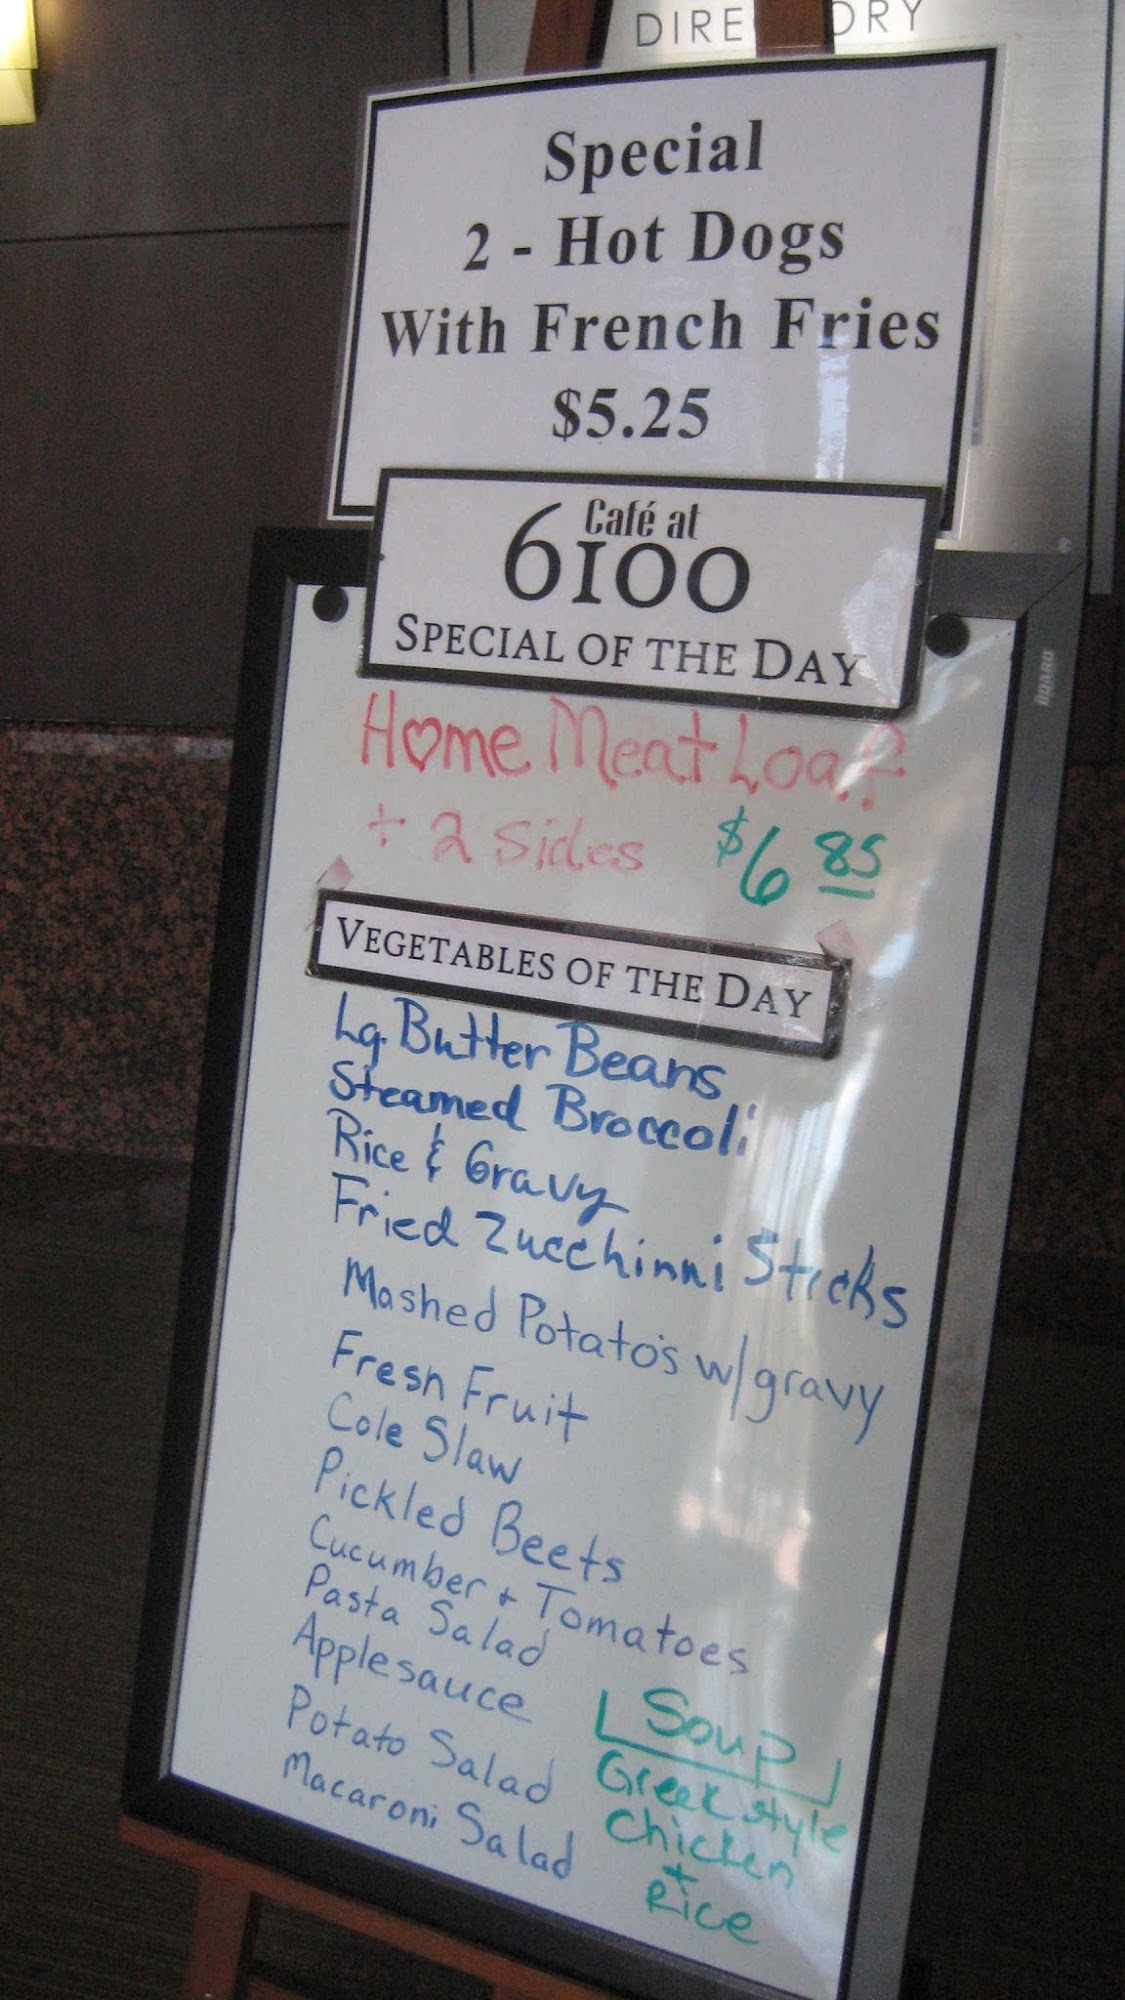 DIRE ORY
Special
2 - Hot Dogs
With French Fries
$5.25
Café at
6100
SPECIAL OF THE DAY
Home Meat Loaf
+ 2 Sides $6 85
VEGETABLES OF THE DAY
Lg. Butter Beans
Steamed Broccoli
Rice & Gravy
Fried Zucchinni Sticks
Mashed Potato's w/gravy
Fresh Fruit
Cole Slaw
Pickled Beets
Cucumber + Tomatoes
Pasta Salad
Applesauce
Potato Salad
Macaroni Salad
Soup
Greek style
Chicken
+
Rice